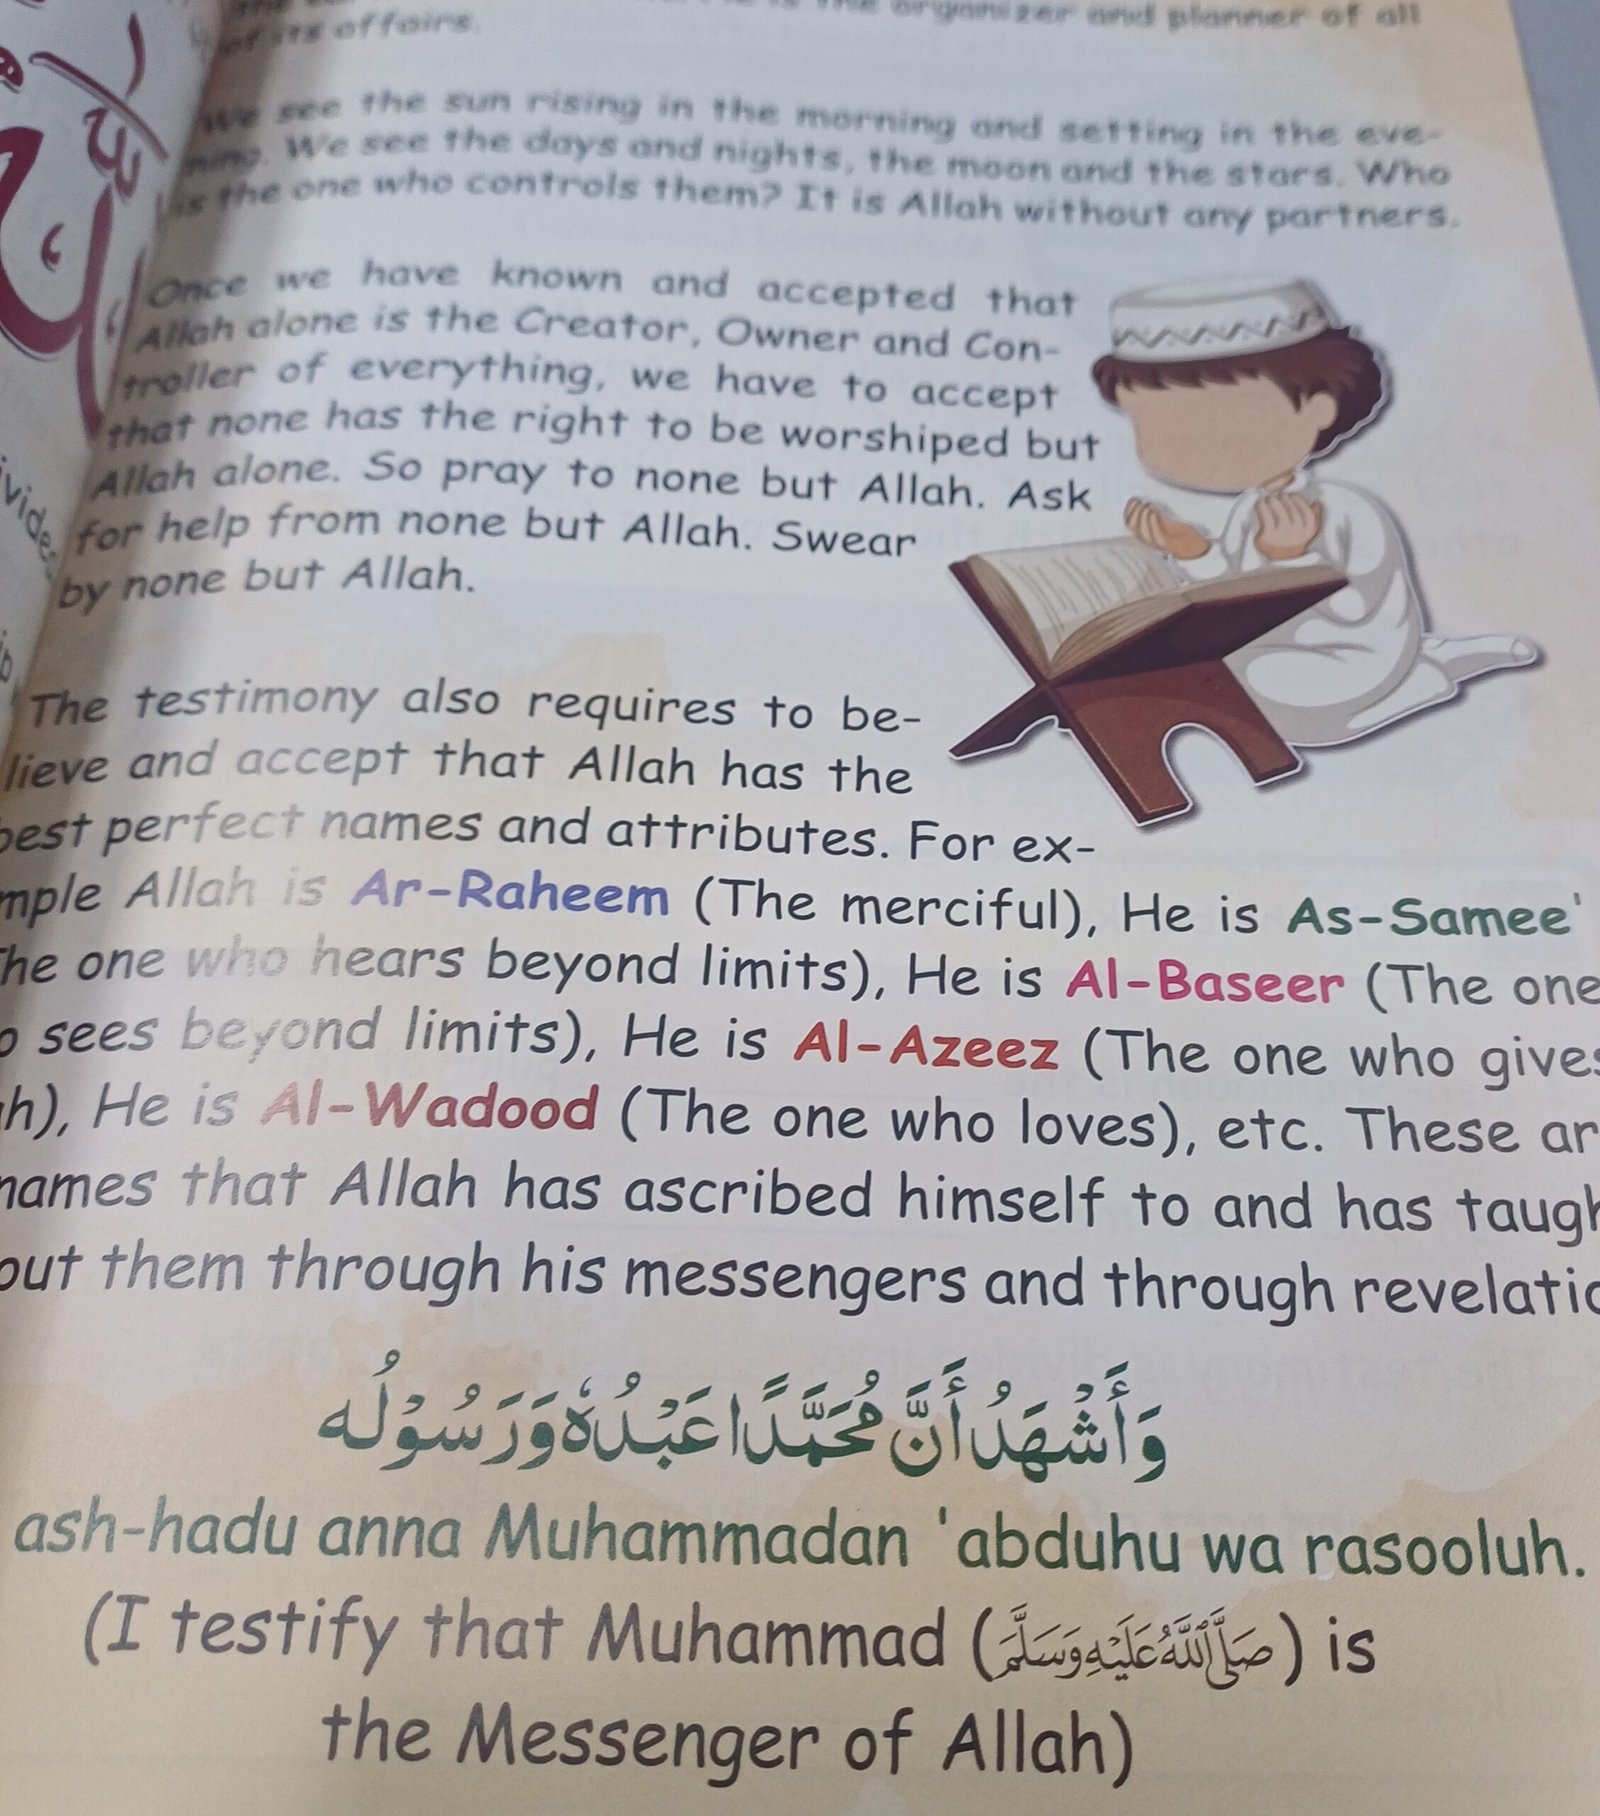 is the organizer and planner of all
of its affairs.
We see the sun rising in the morning and setting in the eve-
ning. We see the days and nights, the moon and the stars. Who
is the one who controls them? It is Allah without any partners.
Once we have known and accepted that
Allah alone is the Creator, Owner and Con-
troller of everything, we have to accept
that none has the right to be worshiped but
Allah alone. So pray to none but Allah. Ask
for help from none but Allah. Swear
by none but Allah.
The testimony also requires to be-
lieve and accept that Allah has the
best perfect names and attributes. For ex-
mple Allah is Ar-Raheem (The merciful), He is As-Samee'
he one who hears beyond limits), He is Al-Baseer (The one
o sees beyond limits), He is Al-Azeez (The one who gives
h), He is Al-Wadood (The one who loves), etc. These ar
names that Allah has ascribed himself to and has taugh
out them through his messengers and through revelatio
وَأَشْهَدُ أَنَّ مُحَمَّدًا عَبْدُهٗ وَرَسُوْلُه
ash-hadu anna Muhammadan 'abduhu wa rasooluh.
(I testify that Muhammad (صَلَّى اللّٰهُ عَلَيْهِ وَسَلَّمَ) is
the Messenger of Allah)